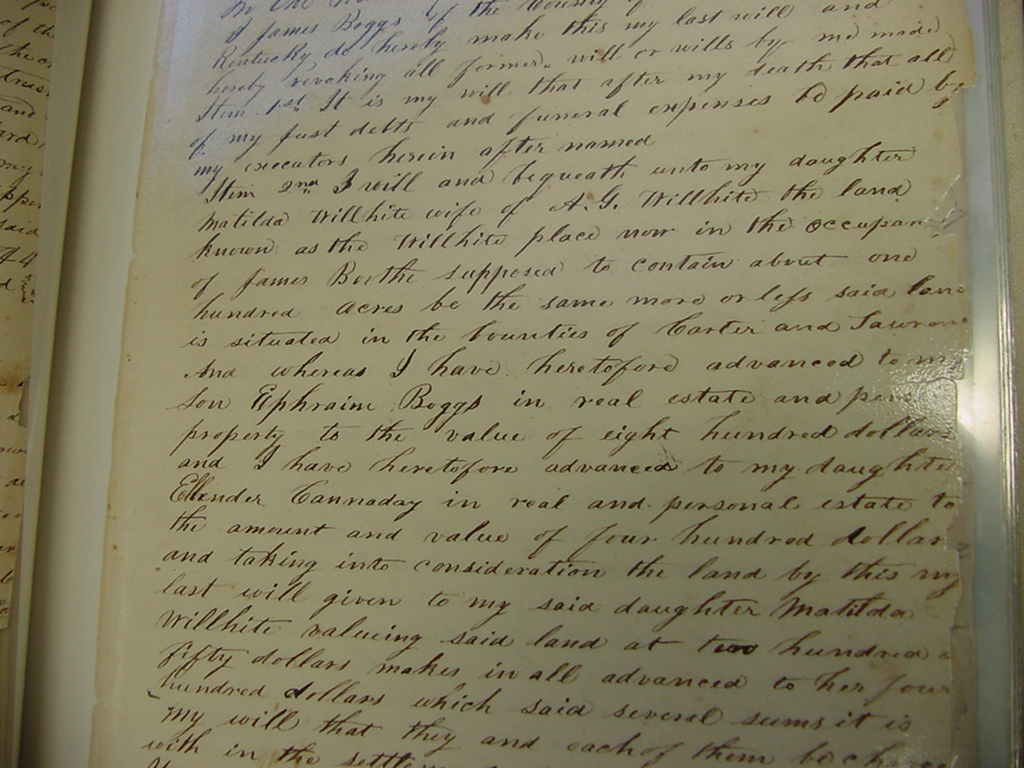 In the
I James Boggs of the County of
Kentucky do hereby make this my last will and
hereby revoking all former will or wills by me made
Item 1st It is my will that after my death that all
of my just debts and funeral expenses be paid by
my executors herein after named
Item 2nd I will and bequeath unto my daughter
Matilda Willhite wife of A.G. Willhite the land
known as the Willhite place now in the occupan
of James Boothe supposed to contain about one
hundred acres be the same more or less said land
is situated in the Counties of Carter and Lawrence
And whereas I have heretofore advanced to my
son Ephraim Boggs in real estate and pers
property to the value of eight hundred dollars
and I have heretofore advanced to my daughte
Ellender Cannaday in real and personal estate to
the amount and value of four hundred dollar
and taking into consideration the land by this my
last will given to my said daughter Matilda
Willhite valueing said land at two hundred
fifty dollars makes in all advanced to her four
hundred dollars which said several sums it is
my will that they and each of them be charge
with in the settle